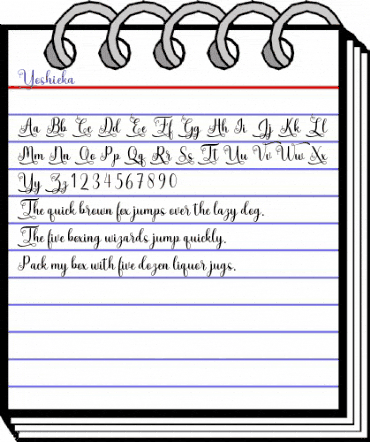 Yoshieka
Aa Bb Cc Dd Ee Ff Gg Hh Ii Jj Kk Ll
Mm Nn Oo Pp Qq Rr Ss Tt Uu Vv Ww Xx
Yy Zz 1 2 3 4 5 6 7 8 9 0
The quick brown fox jumps over the lazy dog.
The five boxing wizards jump quickly.
Pack my box with five dozen liquor jugs.